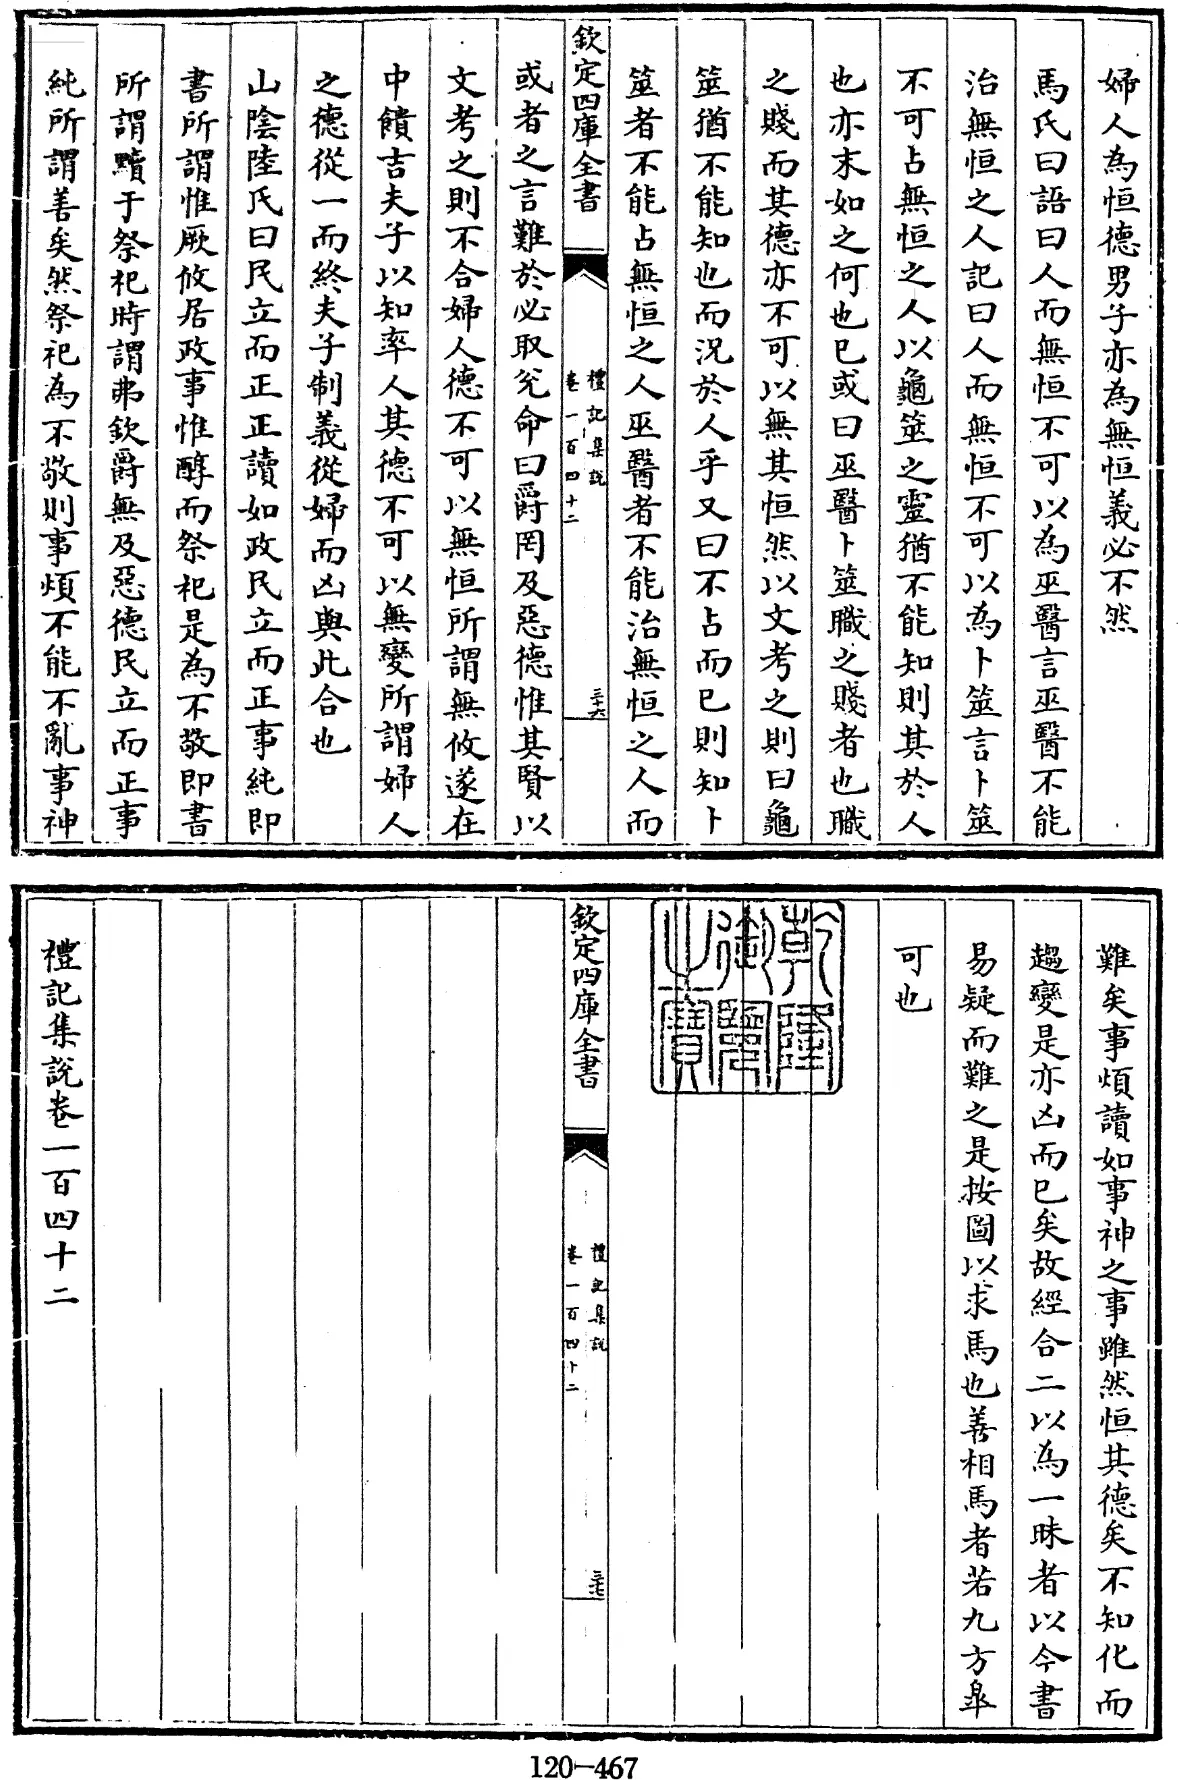 婦人為恒德男子亦為無恒義必不然
馬氏曰語曰人而無恒不可以為巫醫言巫醫不能
治無恒之人記曰人而無恒不可以為卜筮言卜筮
不可占無恒之人以龜筮之靈猶不能知則其於人
也亦末如之何也已或曰巫醫卜筮職之賤者也職
之賤而其德亦不可以無其恒然以文考之則曰龜
筮猶不能知也而況於人乎又曰不占而已則知卜
筮者不能占無恒之人巫醫者不能治無恒之人而
欽定四庫全書
禮記集説
卷一百四十二
三十六
或者之言難於必取兊命曰爵罔及惡德惟其賢以
文考之則不合婦人德不可以無恒所謂無攸遂在
中饋吉夫子以知率人其德不可以無變所謂婦人
之德從一而終夫子制義從婦而凶與此合也
山陰陸氏曰民立而正正讀如政民立而正事純即
書所謂惟厥攸居政事惟醇而祭祀是為不敬即書
所謂黷于祭祀時謂弗欽爵無及惡德民立而正事
純所謂善矣然祭祀為不敬則事煩不能不亂事神
難矣事煩讀如事神之事雖然恒其德矣不知化而
趨變是亦凶而已矣故經合二以為一昧者以今書
易疑而難之是按圖以求馬也善相馬者若九方臯
可也
乾隆御覽之寶
欽定四庫全書
禮記集説
卷一百四十二
三十七
禮記集說卷一百四十二
120-467